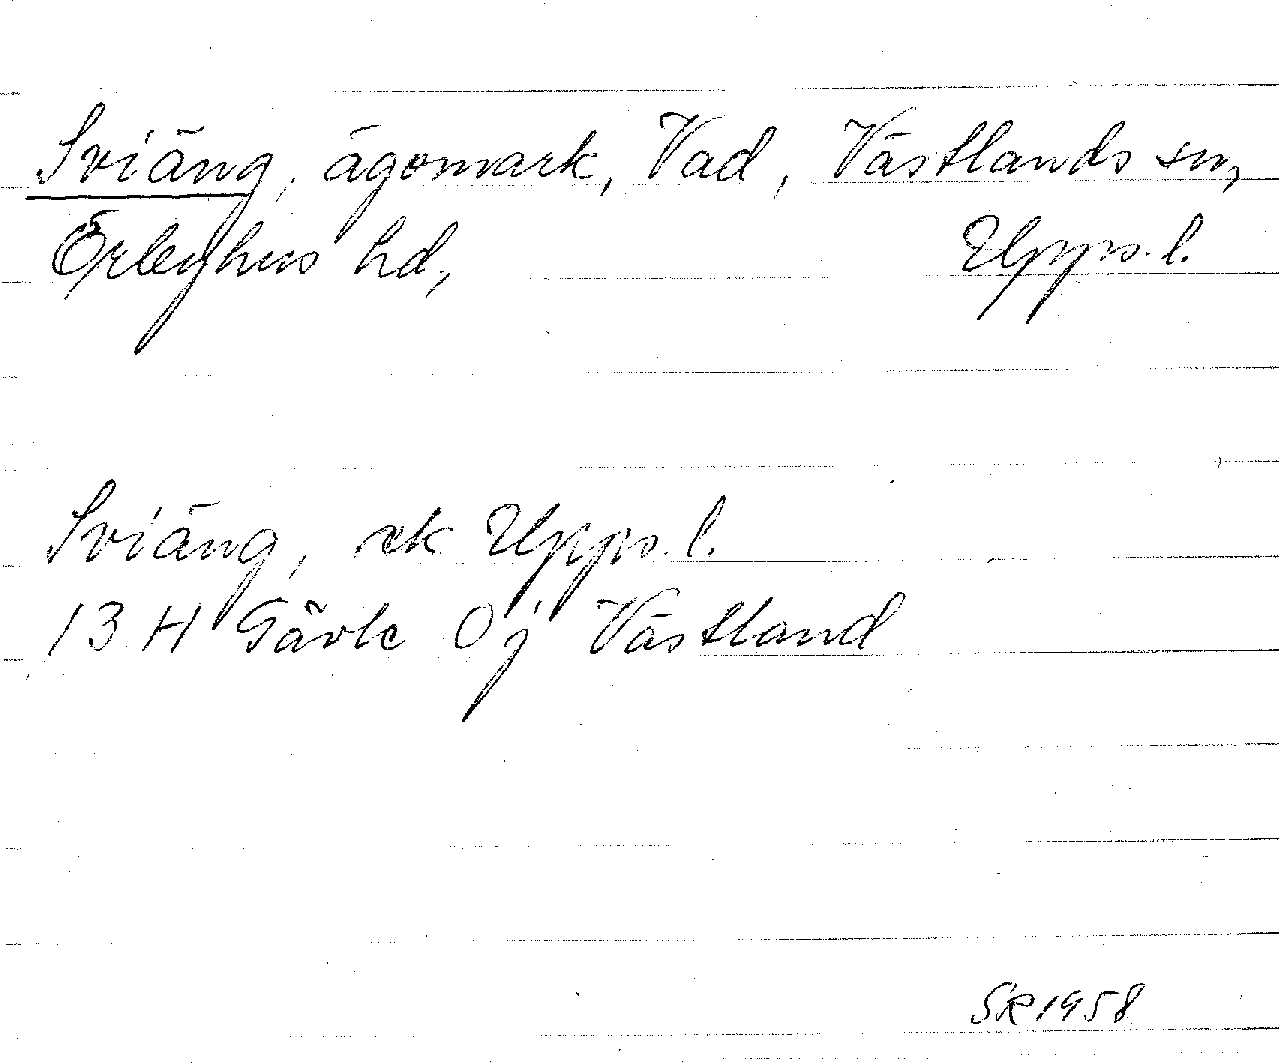 Sviäng, ägomark, Vad, Västlands sn,
Örbyhus hd, Upps.l.
Sviäng, ek Upps.l.
13 H Gävle 0j Västland
SR 1958